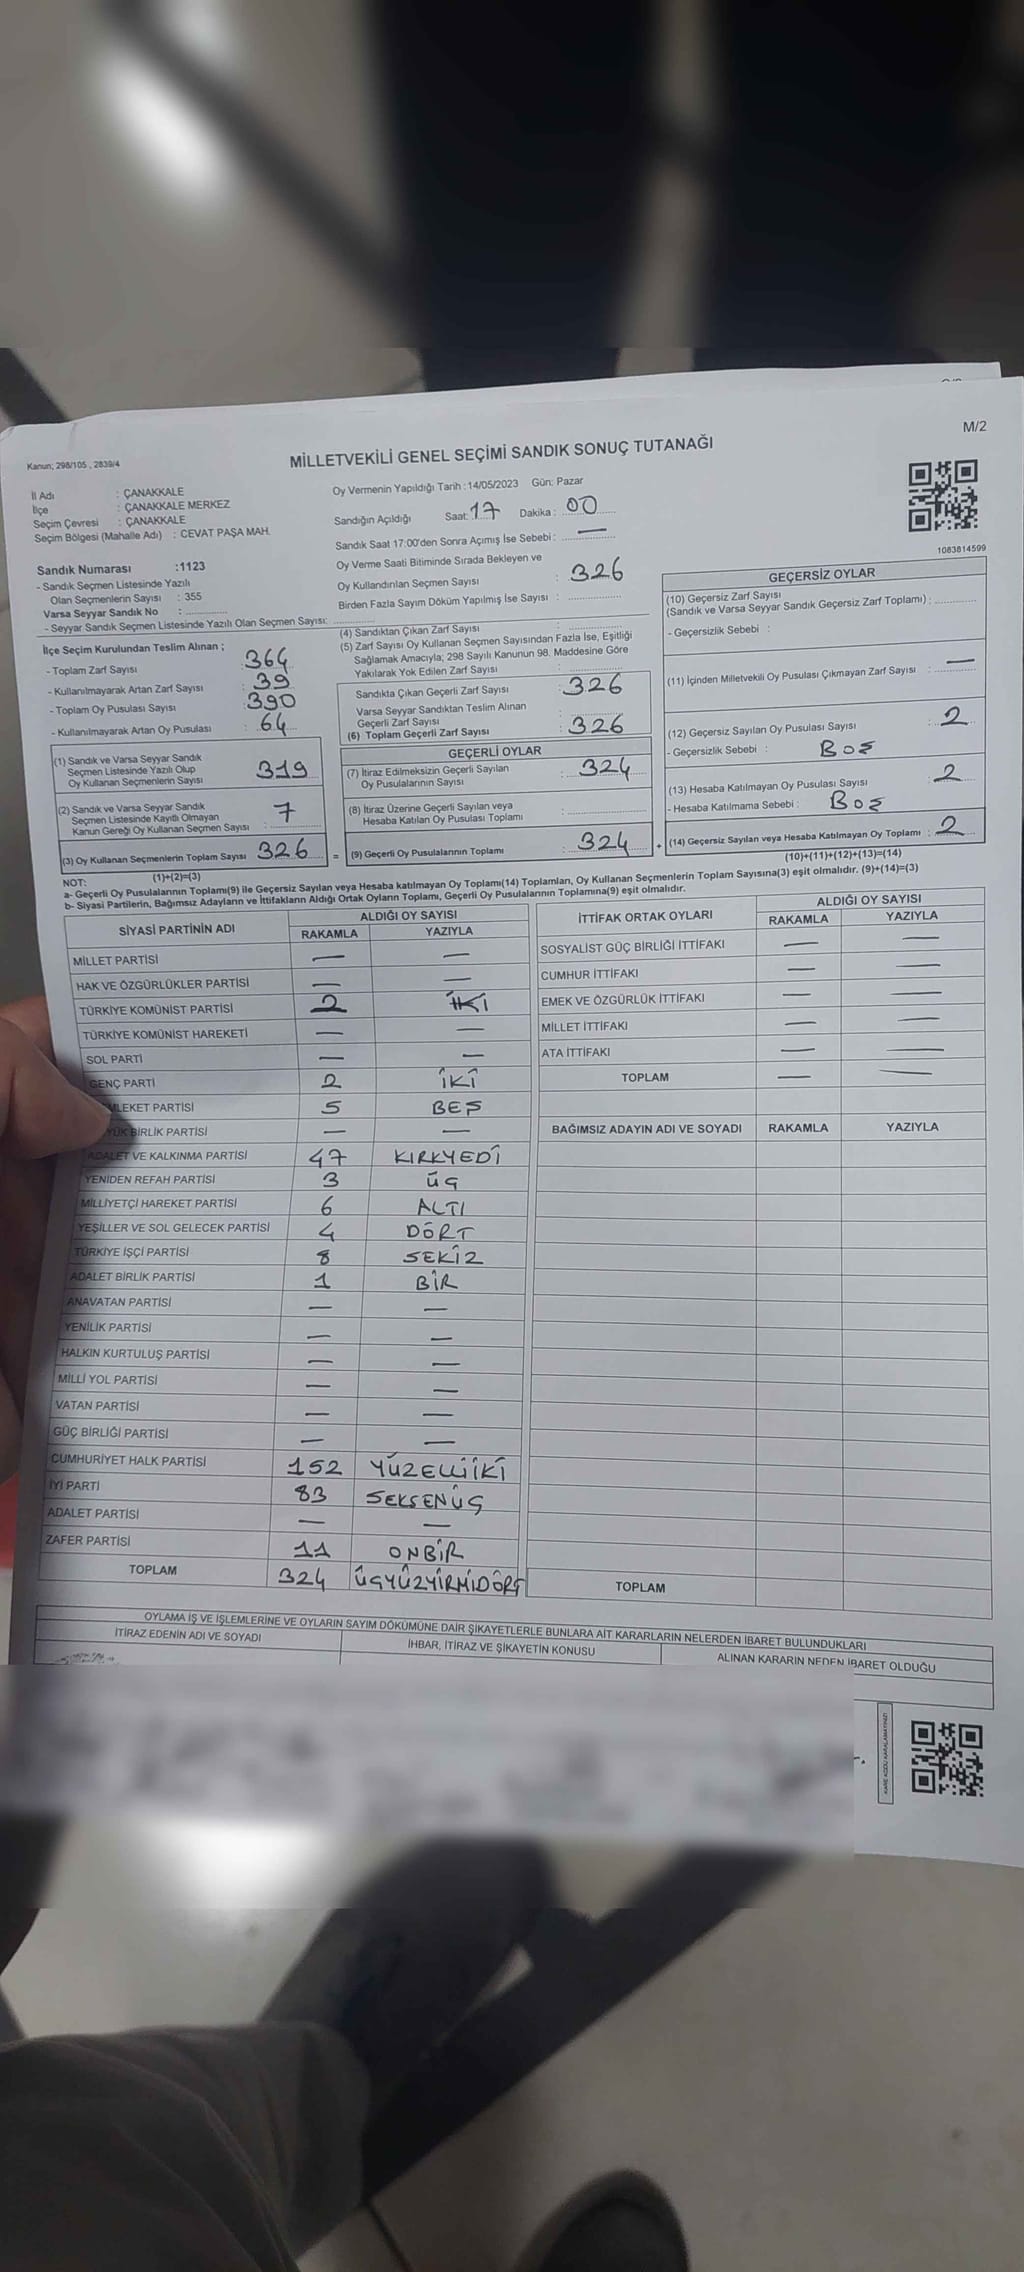 M/2
Kanun; 298/105 , 2839/4
MİLLETVEKİLİ GENEL SEÇİMİ SANDIK SONUÇ TUTANAĞI
İl Adı : ÇANAKKALE
İlçe : ÇANAKKALE MERKEZ
Seçim Çevresi : ÇANAKKALE
Seçim Bölgesi (Mahalle Adı) : CEVAT PAŞA MAH.
Sandık Numarası :1123
- Sandık Seçmen Listesinde Yazılı
Olan Seçmenlerin Sayısı : 355
Varsa Seyyar Sandık No :
- Seyyar Sandık Seçmen Listesinde Yazılı Olan Seçmen Sayısı:
Oy Vermenin Yapıldığı Tarih : 14/05/2023 Gün: Pazar
Sandığın Açıldığı Saat: 17 Dakika : 00
Sandık Saat 17:00'den Sonra Açımış İse Sebebi : —
Oy Verme Saati Bitiminde Sırada Bekleyen ve
Oy Kullandırılan Seçmen Sayısı : 326
Birden Fazla Sayım Döküm Yapılmış İse Sayısı :
1083814599
İlçe Seçim Kurulundan Teslim Alınan ;
- Toplam Zarf Sayısı : 364
- Kullanılmayarak Artan Zarf Sayısı : 39
- Toplam Oy Pusulası Sayısı : 390
- Kullanılmayarak Artan Oy Pusulası : 64
(1) Sandık ve Varsa Seyyar Sandık
Seçmen Listesinde Yazılı Olup
Oy Kullanan Seçmenlerin Sayısı 319
(2) Sandık ve Varsa Seyyar Sandık
Seçmen Listesinde Kayıtlı Olmayan
Kanun Gereği Oy Kullanan Seçmen Sayısı : 7
(3) Oy Kullanan Seçmenlerin Toplam Sayısı 326 =
(1)+(2)=(3)
(4) Sandıktan Çıkan Zarf Sayısı :
(5) Zarf Sayısı Oy Kullanan Seçmen Sayısından Fazla İse, Eşitliği
Sağlamak Amacıyla; 298 Sayılı Kanunun 98. Maddesine Göre
Yakılarak Yok Edilen Zarf Sayısı :
Sandıkta Çıkan Geçerli Zarf Sayısı : 326
Varsa Seyyar Sandıktan Teslim Alınan
Geçerli Zarf Sayısı :
(6) Toplam Geçerli Zarf Sayısı : 326
GEÇERLİ OYLAR
(7) İtiraz Edilmeksizin Geçerli Sayılan
Oy Pusulalarının Sayısı : 324
(8) İtiraz Üzerine Geçerli Sayılan veya
Hesaba Katılan Oy Pusulası Toplamı :
(9) Geçerli Oy Pusulalarının Toplamı : 324 +
GEÇERSİZ OYLAR
(10) Geçersiz Zarf Sayısı
(Sandık ve Varsa Seyyar Sandık Geçersiz Zarf Toplamı) :
- Geçersizlik Sebebi :
(11) İçinden Milletvekili Oy Pusulası Çıkmayan Zarf Sayısı : —
(12) Geçersiz Sayılan Oy Pusulası Sayısı : 2
- Geçersizlik Sebebi : BOŞ
(13) Hesaba Katılmayan Oy Pusulası Sayısı : 2
- Hesaba Katılmama Sebebi : BOŞ
(14) Geçersiz Sayılan veya Hesaba Katılmayan Oy Toplamı : 2
(10)+(11)+(12)+(13)=(14)
NOT:
a- Geçerli Oy Pusulalarının Toplamı(9) ile Geçersiz Sayılan veya Hesaba katılmayan Oy Toplamı(14) Toplamları, Oy Kullanan Seçmenlerin Toplam Sayısına(3) eşit olmalıdır. (9)+(14)=(3)
b- Siyasi Partilerin, Bağımsız Adayların ve İttifakların Aldığı Ortak Oyların Toplamı, Geçerli Oy Pusulalarının Toplamına(9) eşit olmalıdır.
SİYASİ PARTİNİN ADI ALDIĞI OY SAYISI
RAKAMLA YAZIYLA
MİLLET PARTİSİ — —
HAK VE ÖZGÜRLÜKLER PARTİSİ — —
TÜRKİYE KOMÜNİST PARTİSİ 2 İKİ
TÜRKİYE KOMÜNİST HAREKETİ — —
SOL PARTİ — —
GENÇ PARTİ 2 İKİ
MLEKET PARTİSİ 5 BEŞ
YÜK BİRLİK PARTİSİ — —
ADALET VE KALKINMA PARTİSİ 47 KIRKYEDİ
YENİDEN REFAH PARTİSİ 3 ÜÇ
MİLLİYETÇİ HAREKET PARTİSİ 6 ALTI
YEŞİLLER VE SOL GELECEK PARTİSİ 4 DÖRT
TÜRKİYE İŞÇİ PARTİSİ 8 SEKİZ
ADALET BİRLİK PARTİSİ 1 BİR
ANAVATAN PARTİSİ — —
YENİLİK PARTİSİ — —
HALKIN KURTULUŞ PARTİSİ — —
MİLLİ YOL PARTİSİ — —
VATAN PARTİSİ — —
GÜÇ BİRLİĞİ PARTİSİ — —
CUMHURİYET HALK PARTİSİ 152 YÜZELLİİKİ
İYİ PARTİ 83 SEKSENÜÇ
ADALET PARTİSİ — —
ZAFER PARTİSİ 11 ONBİR
TOPLAM 324 ÜÇYÜZYİRMİDÖRT
İTTİFAK ORTAK OYLARI ALDIĞI OY SAYISI
RAKAMLA YAZIYLA
SOSYALİST GÜÇ BİRLİĞİ İTTİFAKI — —
CUMHUR İTTİFAKI — —
EMEK VE ÖZGÜRLÜK İTTİFAKI — —
MİLLET İTTİFAKI — —
ATA İTTİFAKI — —
TOPLAM — —
BAĞIMSIZ ADAYIN ADI VE SOYADI RAKAMLA YAZIYLA
TOPLAM
OYLAMA İŞ VE İŞLEMLERİNE VE OYLARIN SAYIM DÖKÜMÜNE DAİR ŞİKAYETLERLE BUNLARA AİT KARARLARIN NELERDEN İBARET BULUNDUKLARI
İTİRAZ EDENİN ADI VE SOYADI İHBAR, İTİRAZ VE ŞİKAYETİN KONUSU ALINAN KARARIN NEDEN İBARET OLDUĞU
KARE KODU KARALAMAYINIZ!